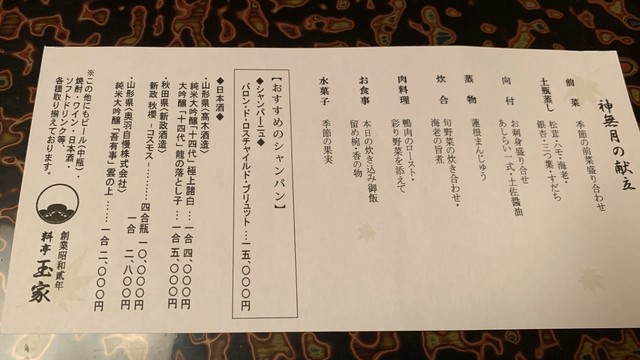 神無月の献立
前菜　季節の前菜盛り合わせ
土瓶蒸し　松茸・ハモ・海老・
銀杏・三つ葉・すだち
向付　お刺身盛り合せ
あしらい一式・土佐醤油
蒸物　蓮根まんじゅう
炊合　旬野菜の炊き合わせ・
海老の旨煮
肉料理　鴨肉のロースト・
彩り野菜を添えて
お食事　本日の炊き込み御飯
留め椀・香の物
水菓子　季節の果実
【おすすめのシャンパン】
◆シャンパーニュ◆
バロン・ド・ロスチャイルド・ブリュット…一五、〇〇〇円
◆日本酒◆
・山形県〈高木酒造〉
純米大吟醸「十四代」極上諸白…一合 四、〇〇〇円
大吟醸「十四代」龍の落とし子…一合 五、〇〇〇円
・秋田県〈新政酒造〉
新政 秋櫻－コスモス－………四合瓶 一〇、〇〇〇円
一合 二、八〇〇円
・山形県〈奥羽自慢株式会社〉
純米大吟醸「吾有事」雲の上…一合 二、〇〇〇円
※この他にもビール（中瓶）・
焼酎・ワイン・日本酒・
ソフトドリンク等、
各種取り揃えております。
創業昭和貳年
料亭 玉家